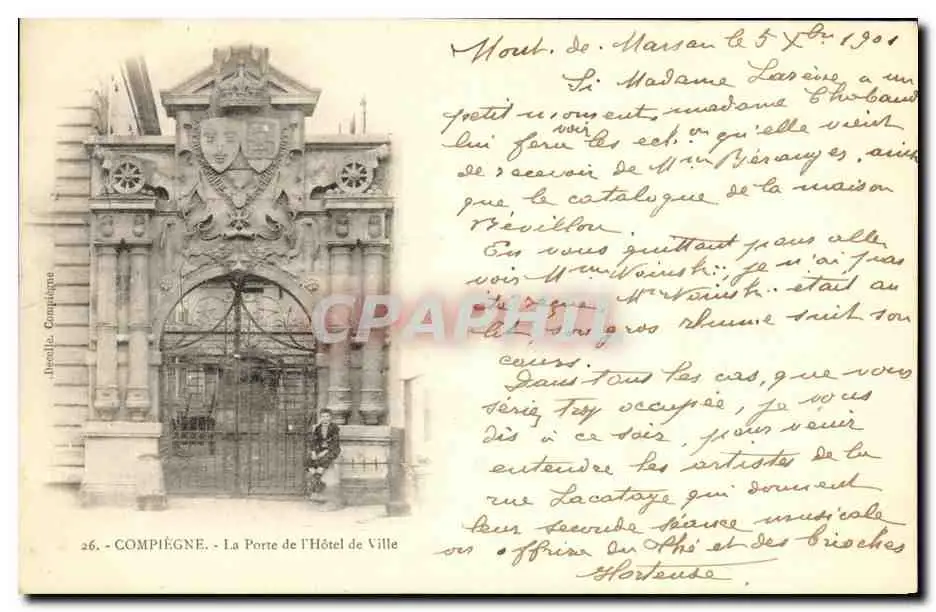 Mont-de-Marsan le 5 Xbre 1901
Si Madame Lasève a un
petit moment, madame Chobaud
lui fera voir les echon qu'elle vient
de recevoir de Mme Béranger, ainsi
que le catalogue de la maison
Révillon.
En vous quittant, pour aller
voir Mme Noinski, je n'ai pas
été reçue, Mr Noinski était au
lit, son gros rhume suit son
cours.
Dans tous les cas, que vous
soyez trop occupée, je vous
dis à ce soir, pour venir
entendre les artistes de la
rue Lacataye qui donnent
leur seconde séance musicale
on offrira du thé et des brioches
Hortense
Decelle, Compiègne
CPAPHIL
26. - COMPIÈGNE. - La Porte de l'Hôtel de Ville